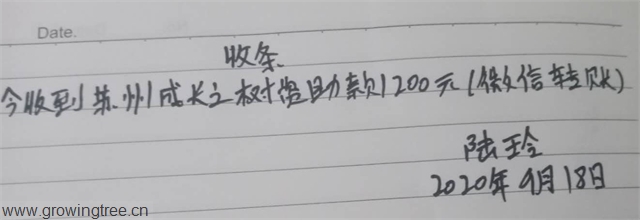 Date.
收条
今收到苏州成长之树资助款1200元(微信转账)
陆玲
2020年9月18日
www.growingtree.cn